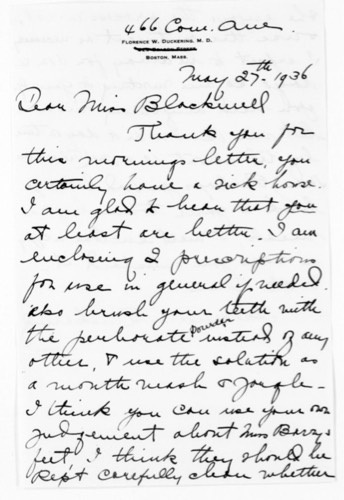 466 Com. Ave
FLORENCE W. DUCKERING, M. D.
BOSTON, MASS.
May 27th 1936
Dear Miss Blackwell
Thank you for
this mornings letter, you
certainly have a sick house.
I am glad to hear that you
at least are better. I am
enclosing 2 prescriptions
for use in general if needed.
also brush your teeth with
the perborate powder instead of any
other, & use the solution as
a mouth wash & gargle -
I think you can use your own
judgement about Miss Barry's
feet, I think they should be
kept carefully clean whether